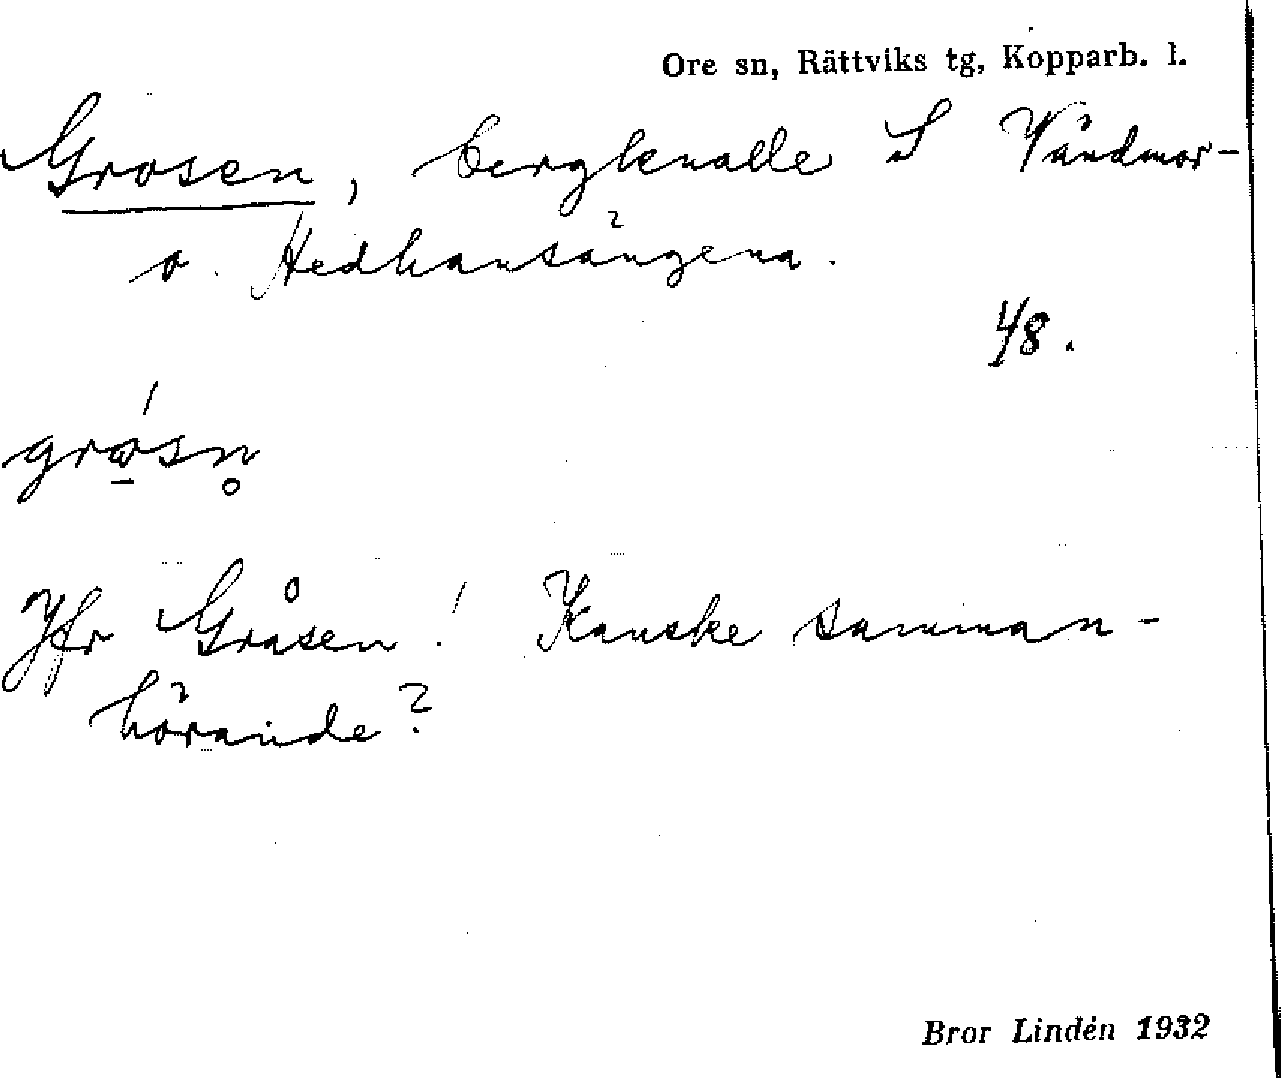 Ore sn, Rättviks tg, Kopparb. l.
Grosen, bergknalle S Våndmor-
o. Hedhansängena.
4/8.
grɷ́sn̥
Jfr Gråsen! Kanske samman-
hörande?
Bror Lindén 1932